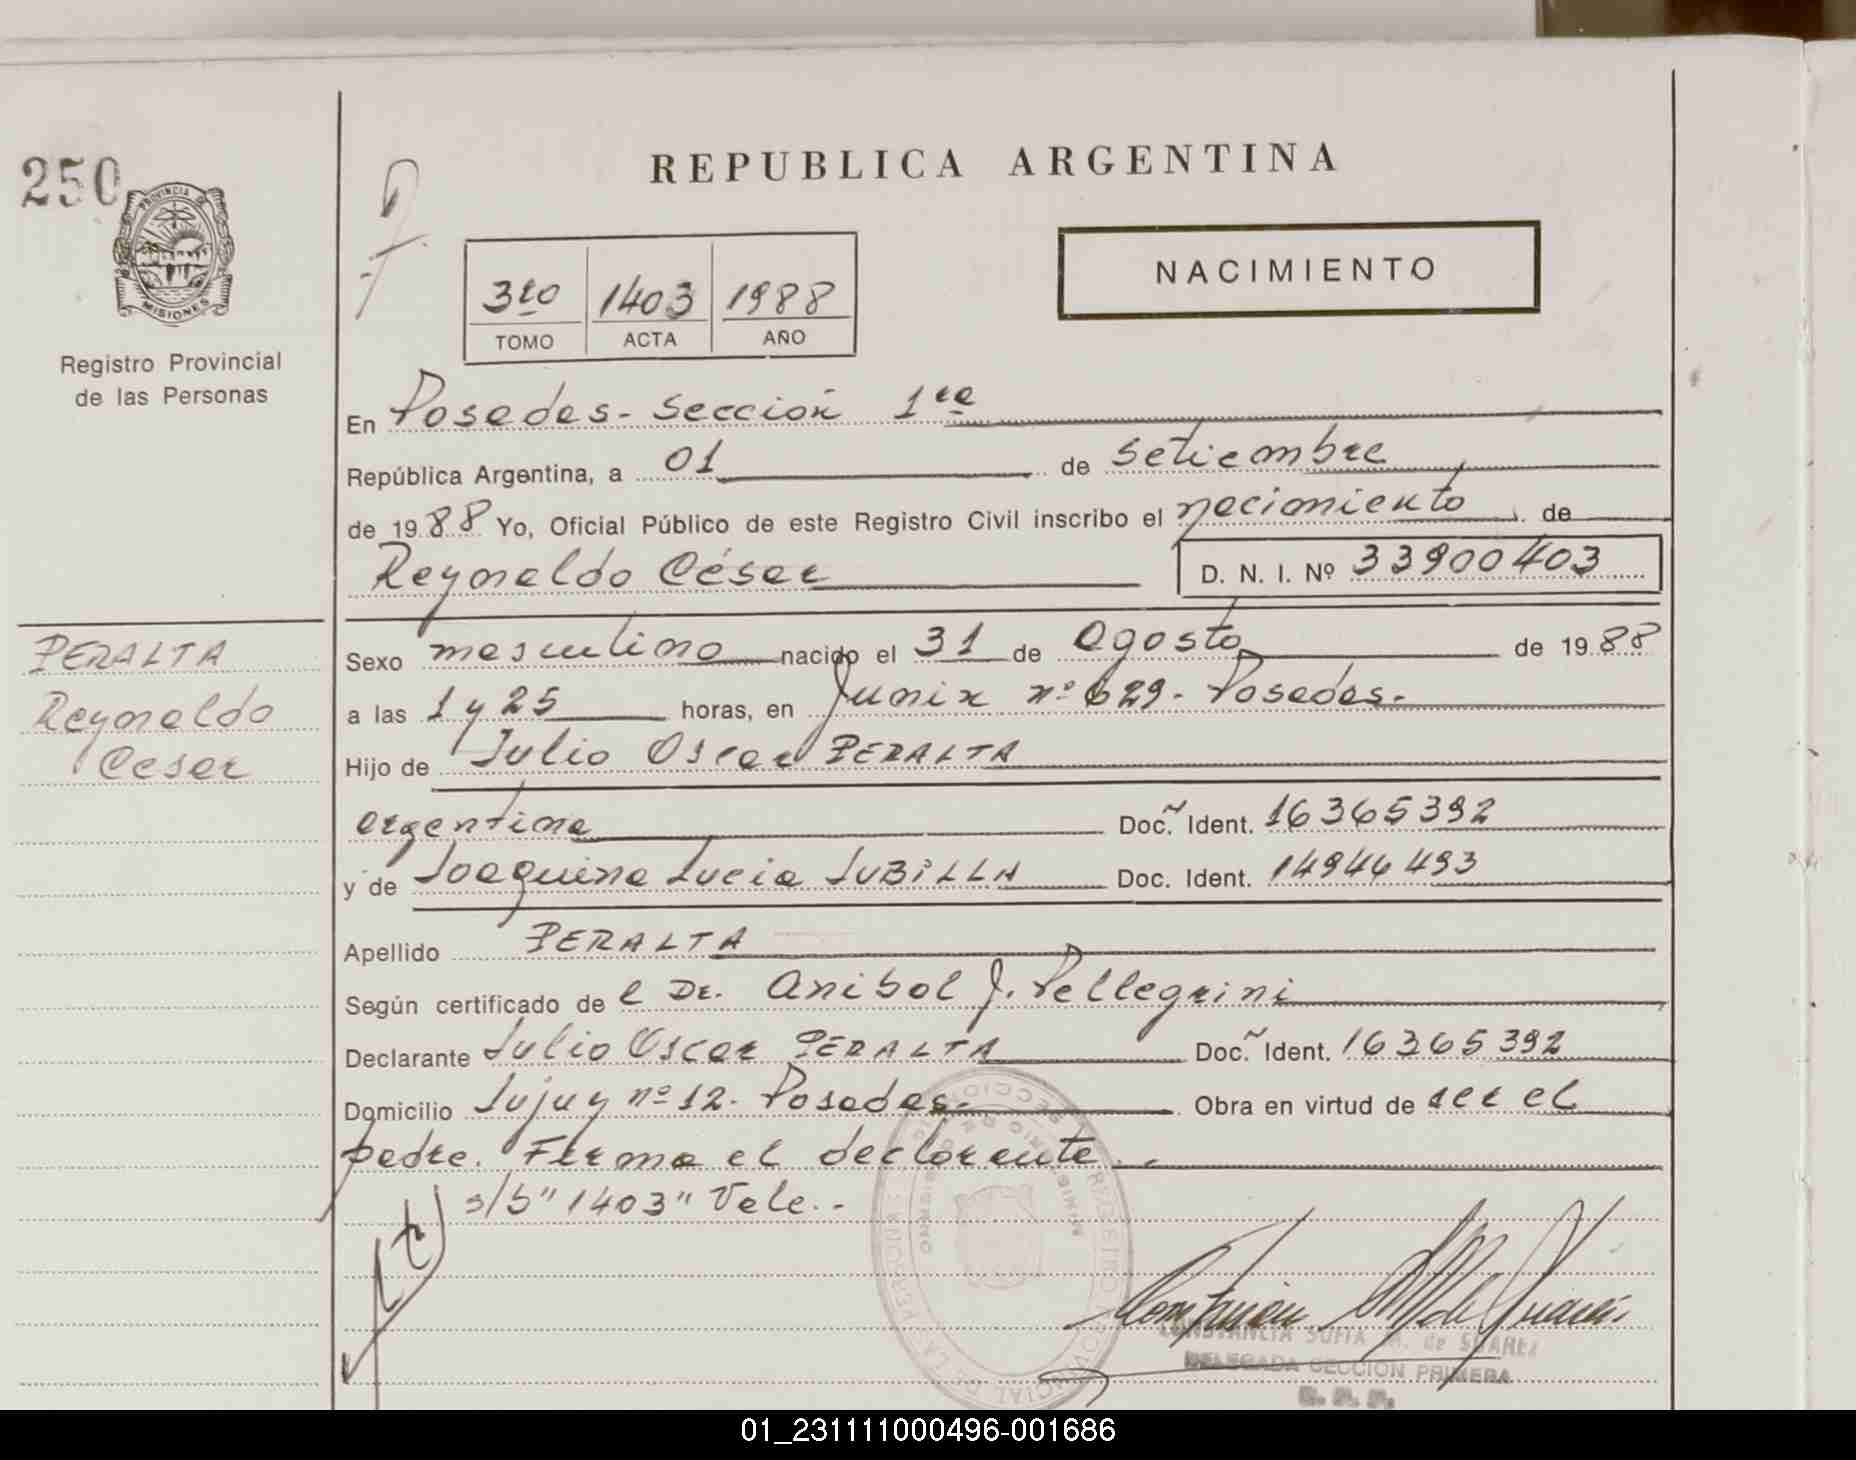 250
PROVINCIA DE
MISIONES
Registro Provincial
de las Personas
REPUBLICA ARGENTINA
NACIMIENTO
3ro 1403 1988
TOMO ACTA AÑO
En Posadas - Sección 1ra
República Argentina, a 01 de Setiembre
de 1988 Yo, Oficial Público de este Registro Civil inscribo el nacimiento de
Reynaldo César D. N. I. Nº 33900403
PERALTA
Reynaldo
Cesar
Sexo masculino nacido el 31 de Agosto de 1988
a las 1 y 25 horas, en Junin nº 629 - Posadas.-
Hijo de Julio Oscar PERALTA
argentina Doc. Ident. 16365392
y de Joaquina Lucia SUBILLA Doc. Ident. 14946493
Apellido PERALTA
Según certificado de el Dr. Anibal J. Pellegrini
Declarante Julio Oscar PERALTA Doc. Ident. 16365392
Domicilio Jujuy nº 12 - Posadas.- Obra en virtud de ser el
padre. Firma el declarante.-
s/b "1403" Vale.-
CONSTANCIA SOFIA M. de SUAREZ
DELEGADA SECCION PRIMERA
01_231111000496-001686